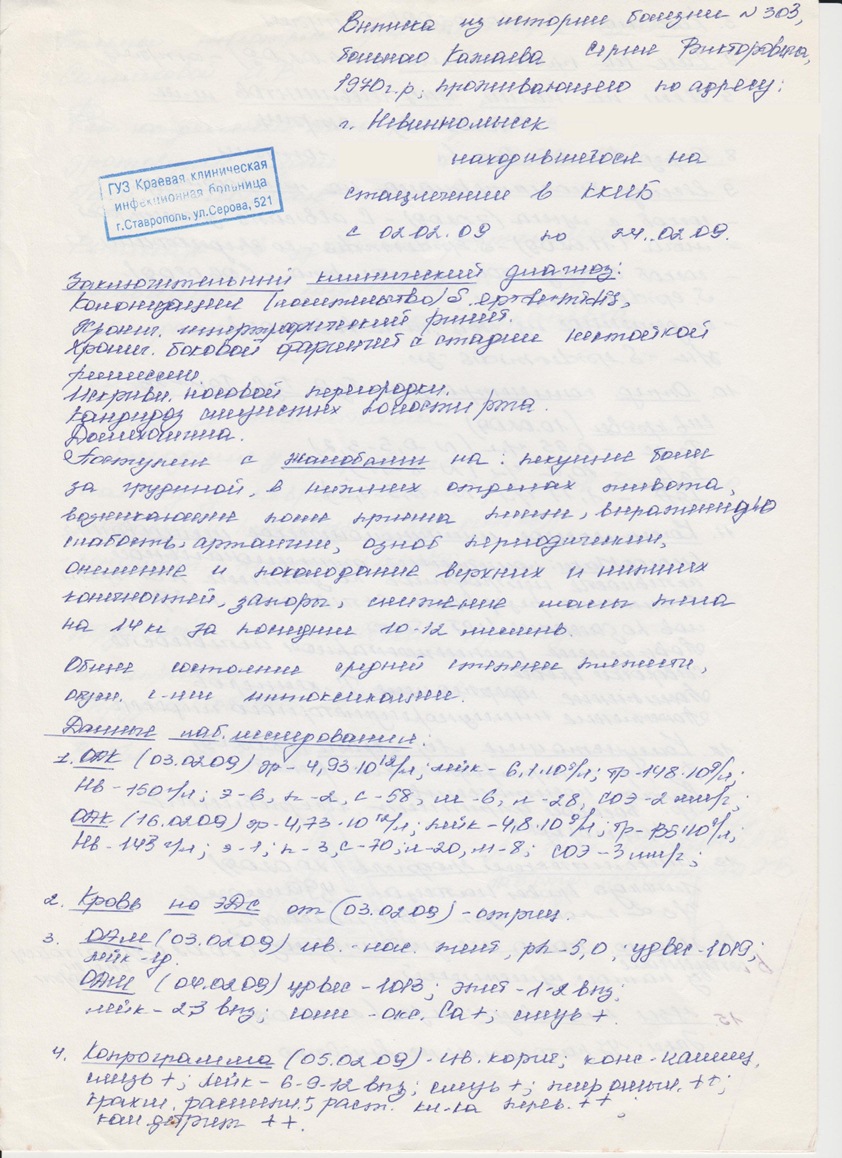 Выписка из истории болезни № 303,
больного Кажаева Сергея Викторовича,
1970г.р, проживающего по адресу:
г. Невинномысск
находившегося на
стацлечении в ККИБ
с 02.02.09 по 24.02.09.
ГУЗ Краевая клиническая
инфекционная больница
г.Ставрополь, ул.Серова, 521
Заключительный клинический диагноз:
Колонизация (носительство) S. epidermidis,
Хронич. гипертрофический ринит.
Хронич. боковой фарингит в стадии нестойкой
ремиссии
Искривл. носовой перегородки.
Кандидоз слизистых полости рта.
Долихосигма.
Поступил с жалобами на: пекущие боли
за грудиной, в нижних отделах живота,
возникающие после приема пищи, выраженную
слабость, артралгии, озноб периодический,
онемение и похолодание верхних и нижних
конечностей, запоры, снижение массы тела
на 14 кг за последние 10-12 месяцев.
Общее состояние средней степени тяжести,
с-м интоксикации.
Данные лаб. исследования:
1. ОАК (03.02.09) эр- 4,93·10¹²/л; лейк- 6,1·10⁹/л; Тр-148·10⁹/л;
Нв-150 г/л; э-6, п-2, с-58, м-6, л-28, СОЭ-2 мм/г;
ОАК (16.02.09) эр-4,73·10¹²/л; лейк-4,8·10⁹/л; Тр- 10⁹/л;
Нв-143 г/л; э-1; п-3, с-70; л-20, м-8; СОЭ-3 мм/г;
2. Кровь на ЭДС от (03.02.09) - отриц.
3. ОАМ (03.02.09) цв.-нас. желт, ph-5,0; уд вес-1019;
лейк-
ОАМ (04.02.09) уд вес-1013; эпит-1-2 впз;
лейк-2-3 впз; соли-окс. Са+; слизь +.
4. Копрограмма (05.02.09)- цв. корич; конс-кашиц,
слизь +; лейк- 6-9-12 впз; слизь +; жир омыл. ++;
крахм. раст. кл-ка перев. ++;
детрит ++.